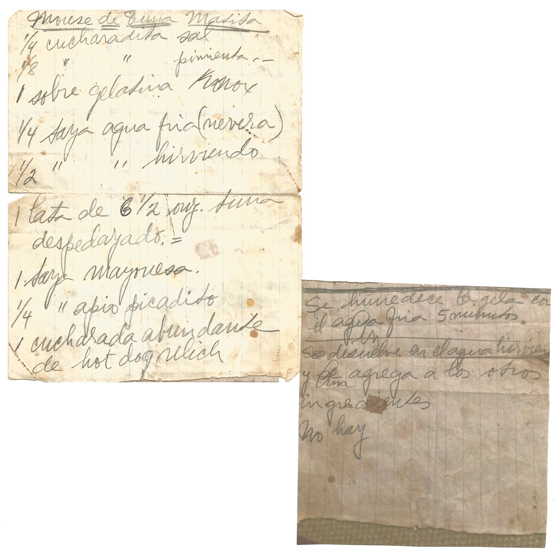 Mouse de Tuna Masita
1/4 cucharadita sal
1/8 " " pimienta.-
1 sobre gelatina Knox
1/4 taza agua fria (nevera)
1/2 " " hirviendo
1 lata de 6 1/2 onz. tuna
despedazado.=
1 taza mayonesa.
1/4 " apio picadito
1 cucharada abundante
de hot dog relich
Se humedece la gela con
el agua fria 5 minutos
disuelve en el agua
y se agrega a los otros
ingredientes
No hay